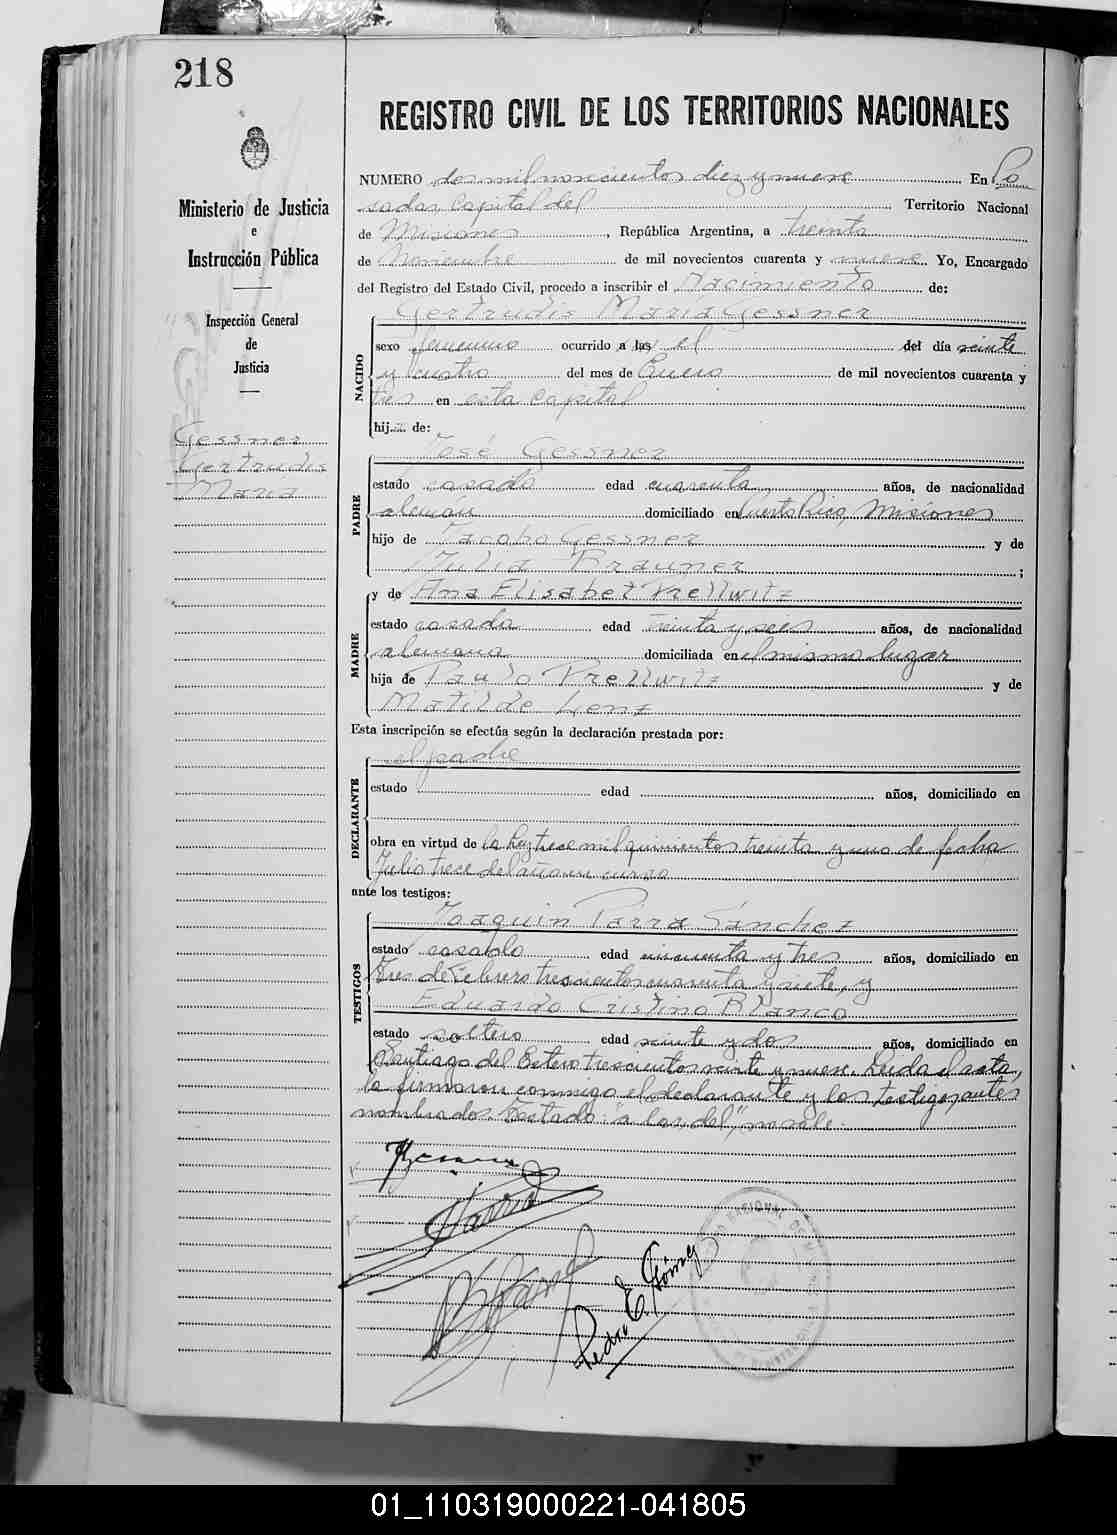 218
Ministerio de Justicia
e
Instrucción Pública
Inspección General
de
Justicia
Gessner
Gertrudis
María
REGISTRO CIVIL DE LOS TERRITORIOS NACIONALES
NUMERO dos mil novecientos diez y nueve En Po
sadas, Capital del Territorio Nacional
de Misiones, República Argentina, a treinta
de Noviembre de mil novecientos cuarenta y nueve Yo, Encargado
del Registro del Estado Civil, procedo a inscribir el Nacimiento de:
Gertrudis María Gessner
NACIDO
sexo femenino ocurrido a las el del día veinte
y cuatro del mes de Enero de mil novecientos cuarenta y
tres en esta Capital
hij de:
José Gessner
PADRE
estado casado edad cuarenta años, de nacionalidad
alemán domiciliado en Puerto Rico, Misiones
hijo de Jacobo Gessner y de
Julia Brauner;
y de Ana Elisabet Prellwitz
MADRE
estado casada edad treinta y seis años, de nacionalidad
alemana domiciliada en el mismo lugar
hija de Paulo Prellwitz y de
Matilde Lenz
Esta inscripción se efectúa según la declaración prestada por:
el padre
DECLARANTE
estado edad años, domiciliado en
obra en virtud de la ley trece mil quinientos treinta y uno de fecha
Julio trece del año en curso
ante los testigos:
Joaquín Parra Sánchez
TESTIGOS
estado casado edad cincuenta y tres años, domiciliado en
Tres de Febrero trescientos cuarenta y siete, y
Eduardo Cristino Blanco
estado soltero edad veinte y dos años, domiciliado en
Santiago del Estero trescientos veinte y nueve. Leída el acta,
la firmaron conmigo el declarante y los testigos, antes
nombrados. Testado: "a las, del", no vale.
Parra
Pedro E. Gómez
01_110319000221-041805